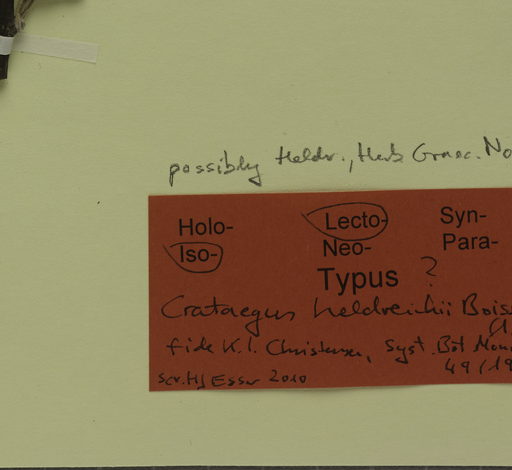 possibly Heldr., Herb Graec. No
Holo- Lecto- Syn-
Iso- Neo- Para-
Typus ?
Crataegus heldreichii Boiss
fide K. I. Christensen, Syst. Bot Mon
49 / 19
scr. HJ Esser 2010